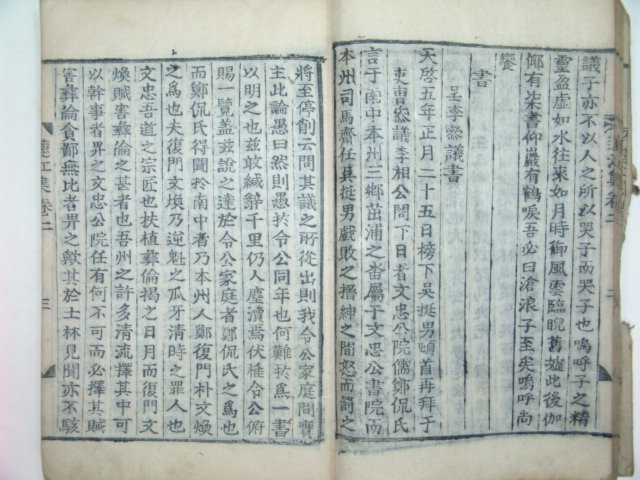 議子亦不以人之所以哭子而哭子也嗚呼子之精
靈盈虛如水往來如月時御風雲臨睨舊墟此後伽
倻有朱書仰巖有鶴唳吾必曰滄浪子至矣嗚呼尚
饗
書
呈李叅議書
天啓五年正月二十五日榜下吳挺男頓首再拜子
吏曹叅議李相公閤下日者文忠公院儒鄭侃氏
言于南中本州三鄉茁浦之沓屬于文忠公書院而
本州司馬齋任吳挺男戲敗之搢紳之間怒而罰之
將至停削云問其議之所從出則我令公家庭間實
主此論愚曰然則愚於令公同年也何難於爲一書
以明之也玆敢緘辭千里仍人塵瀆焉伏惟令公俯
賜一覽盖玆說之達於令公家庭者鄭侃氏之爲也
而鄭侃氏得聞於南中者乃本州人鄭復門朴文煥
之爲也夫復門文煥乃逆魁之瓜牙清時之罪人也
文忠吾道之宗匠也扶植彛倫揭之日月而復門文
煥賊害彛倫之甚者也吾州之許多清流擇其中可
以幹事者畀之文忠公院任有何不可而必擇其賊
害彛倫貪鄙無比者畀之數其於士林見聞亦不駭
蓮江集 卷二
三